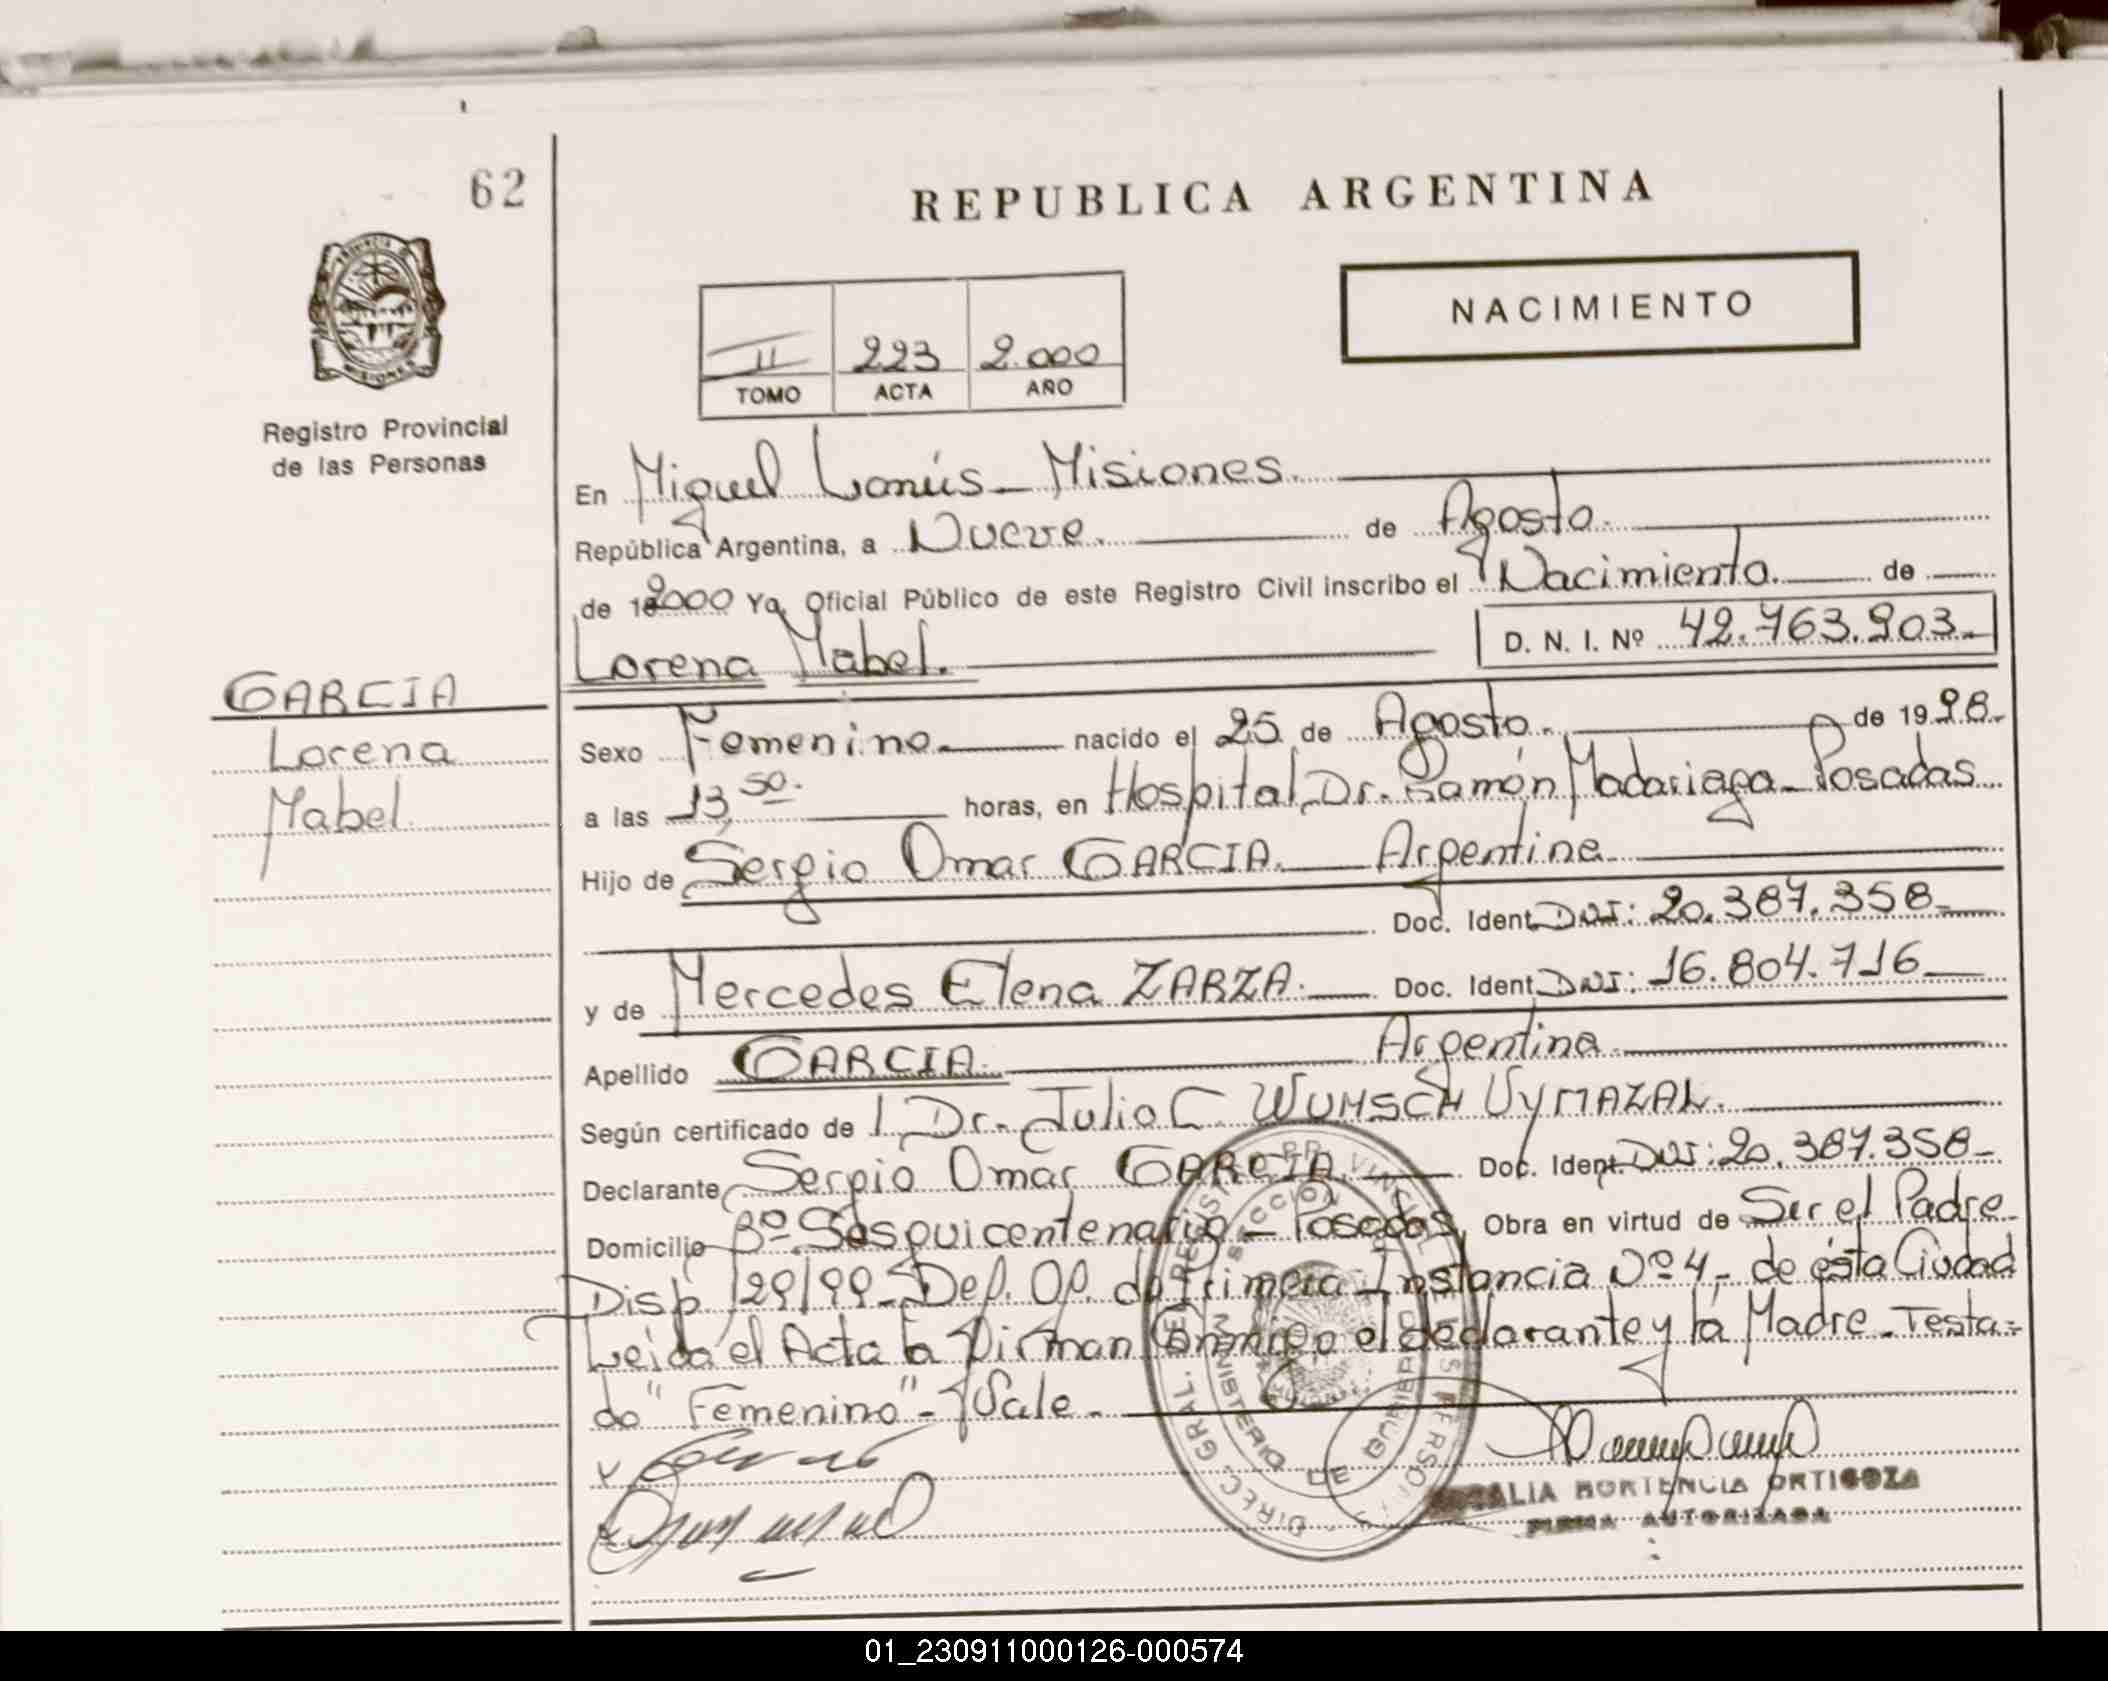 62
REPUBLICA ARGENTINA
NACIMIENTO
II 223 2.000
TOMO ACTA AÑO
PROVINCIA DE
MISIONES
Registro Provincial
de las Personas
En Miguel Lanús - Misiones.
República Argentina, a Nueve. de Agosto.
de 2000 Yo, Oficial Público de este Registro Civil inscribo el Nacimiento. de
Lorena Mabel. D. N. I. Nº 42.763.903.-
GARCIA
Lorena
Mabel
Sexo Femenino. nacido el 25 de Agosto. de 1998.-
a las 13,50. horas, en Hospital Dr. Ramón Madariaga - Posadas
Hijo de Sergio Omar GARCIA. Argentino
Doc. Ident. DNI: 20.387.358.-
y de Mercedes Elena ZARZA. Doc. Ident. DNI: 16.804.716
Argentina
Apellido GARCIA.
Según certificado de Dr. Julio C. WUNSCH VYMAZAL.
Declarante Sergio Omar GARCIA. Doc. Ident. DNI: 20.387.358-
Domicilio Bº Sesquicentenario - Posadas, Obra en virtud de Ser el Padre
Disp. 129/99 - Def. Of. de Primera Instancia Nº 4 - de ésta Ciudad
Leida el Acta la Firman Conmigo el declarante y la Madre - Testa=
do "Femenino" - Vale -
DIREC. GRAL. DEL REGISTRO PROVINCIAL DE LAS PERSONAS
MINISTERIO DE GOBIERNO
SECCION
HORTENCIA ORTIGOZA
FIRMA AUTORIZADA
01_230911000126-000574